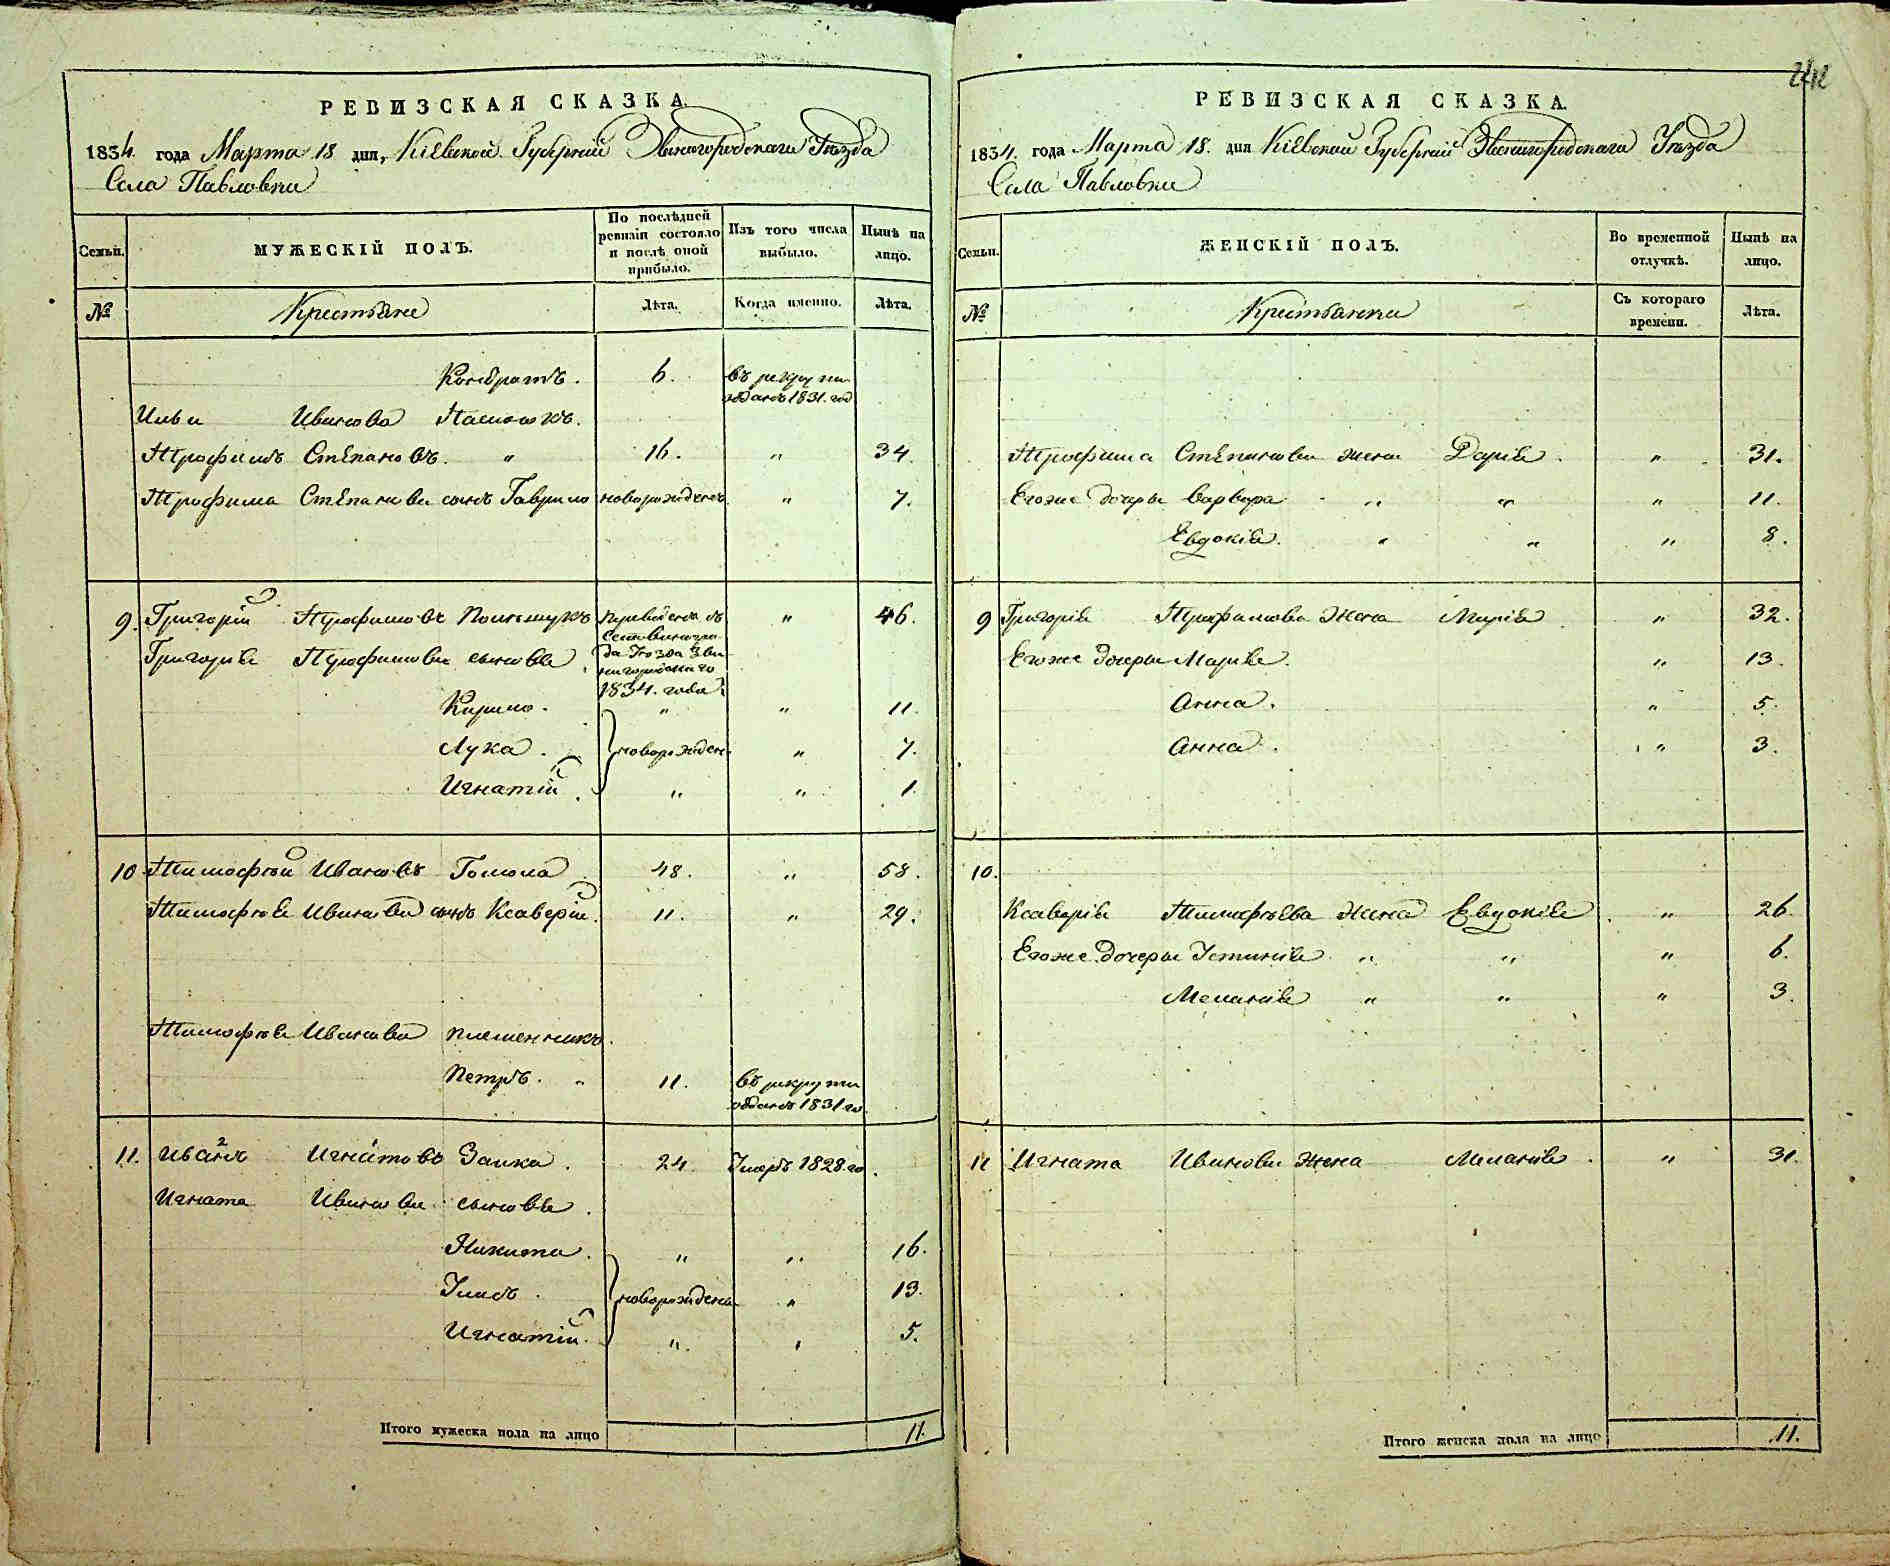 РЕВИЗСКАЯ СКАЗКА.
1834. года Марта 18 дня, Кіевской Губерніи Звенигородскаго Уѣзда
Села Павловки
Семьи.
МУЖЕСКІЙ ПОЛЪ.
По послѣдней ревизіи состояло и послѣ оной прибыло.
Изъ того числа выбыло.
Нынѣ на лицо.
№
Крестьяне
Лѣта.
Когда именно.
Лѣта.
Кондратъ. 6. въ рекруты
отданъ 1831. год
Ильи Иванова
Трофимъ Степановъ. " 16. " 34
Трофима Степанова сынъ Гаврило новорожденъ " 7.
9. Григорій Трофимовъ Полищукъ " 46.
Григорія Трофимова сыновья
1834. года
Кирило. " " 11.
Лука. новорожден. " 7.
Игнатій. " " 1
10. Тимофѣй Ивановъ Гомола 48. " 58.
Тимофѣя Иванова сынъ Ксаверій. 11. " 29.
Тимофѣя Иванова племенникъ
Петръ. " 11. въ рекруты
отданъ 1831 го
11. Иванъ 2 Игнатовъ Заика. 24 Умеръ 1828. го.
Игната Иванова сыновья.
Никита. " " 16.
новорождены " 13.
Игнатій. " " 5.
Итого мужеска пола на лицо 11.
242
РЕВИЗСКАЯ СКАЗКА.
1834. года Марта 18. дня Кіевской Губерніи Звенигородскаго Уѣзда
Села Павловки
Семьи.
ЖЕНСКІЙ ПОЛЪ.
Во временной отлучкѣ.
Нынѣ на лицо.
№
Крестьянки
Съ котораго времени.
Лѣта.
Трофима Степанова жена Дарія. " 31.
Егоже дочеры Варвара " " " 11.
Евдокія. " " " 8.
9 Григорія Трофимова жена Марія " 32.
Егоже дочеры Марія. " 13.
Анна. " 5.
Анна. " 3.
10.
Ксаверія Тимофѣева жена Евдокія. " 26.
Егоже дочеры Устинія " " " 6.
Меланія " " " 3.
11 Игната Иванова жена Меланія. " 31.
Итого женска пола на лицо 11.